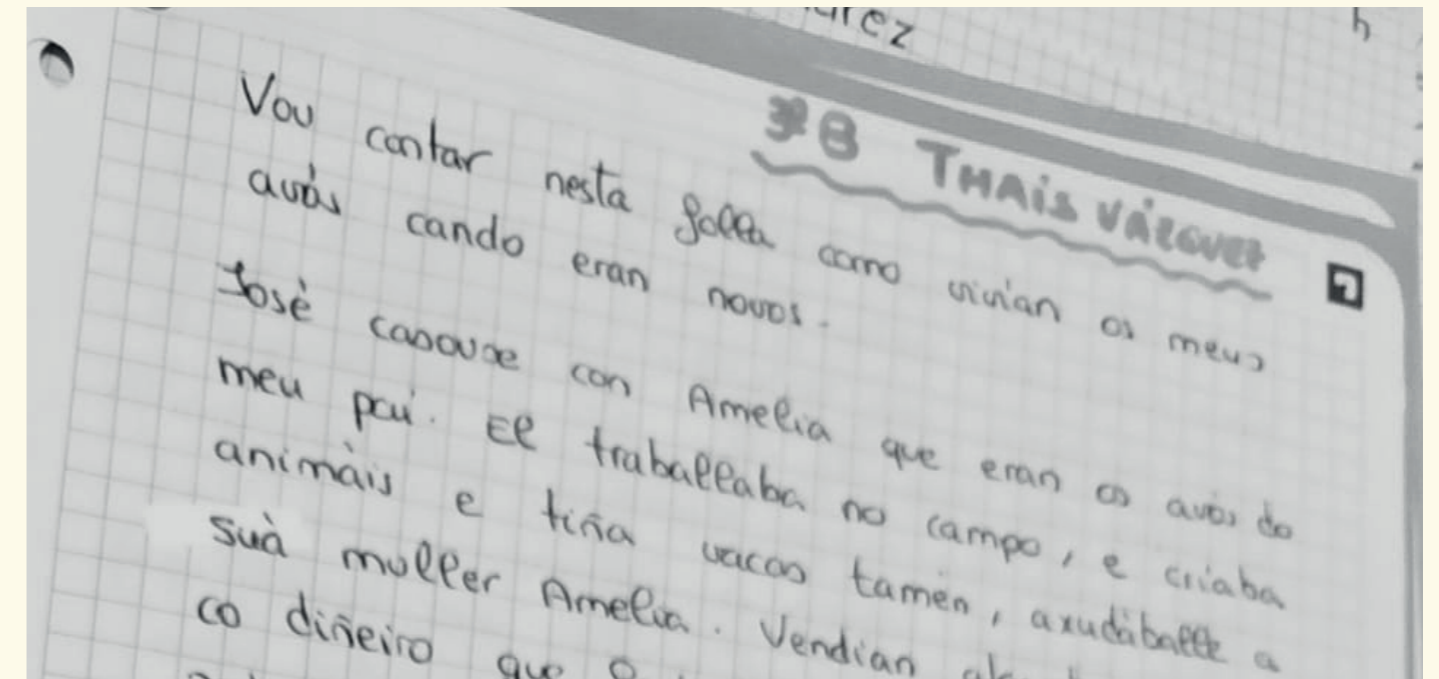 3ºB THAÍS VÁZQUEZ
Vou contar nesta folla como vivian os meus
avós cando eran novos.
José casouse con Amelia que eran os avós do
meu pai. El traballaba no campo, e criaba
animáis e tiña vacas tamén, axudáballe a
suà muller Amelia. Vendian
co diñeiro que